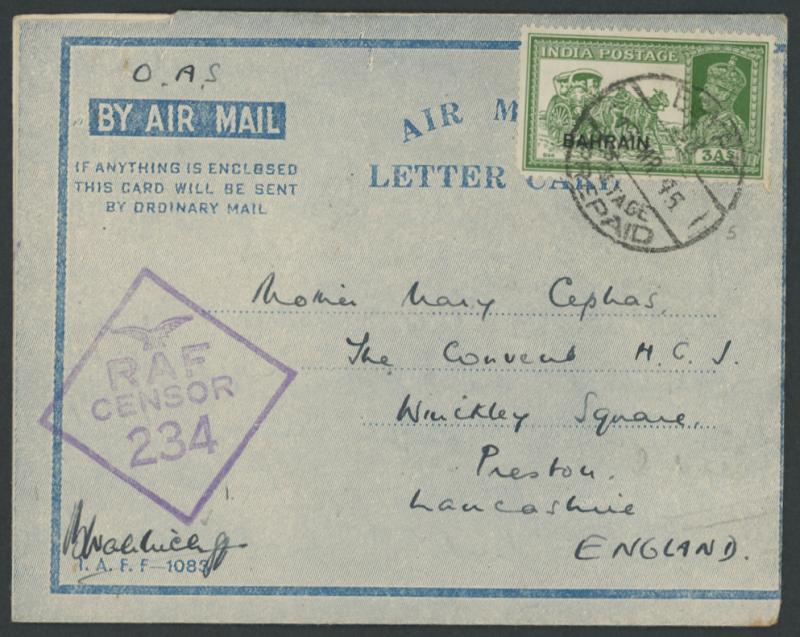 O.A.S
BY AIR MAIL
IF ANYTHING IS ENCLOSED
THIS CARD WILL BE SENT
BY ORDINARY MAIL
AIR M
LETTER CARD
INDIA POSTAGE
BAHRAIN
3AS
POSTAGE
PREPAID
45
5
Mother Mary Cephas,
The Convent H.C.J.
Winckley Square,
Preston.
Lancashire
ENGLAND.
RAF
CENSOR
234
I. A. F. F—1083